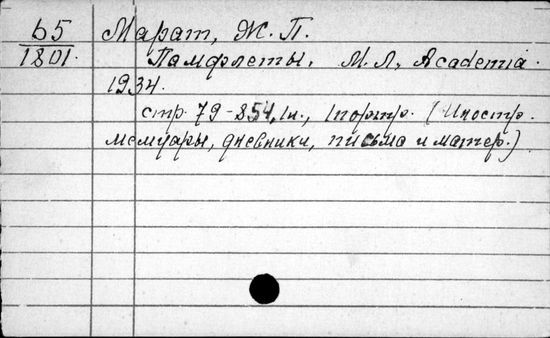 Б5 Марат, Ж. П.
1801. Памфлеты. М.Л, Academia.
1934.
стр. 79-854, 1л., 1портр. (Иностр.
мемуары, дневники, письма и матер.)